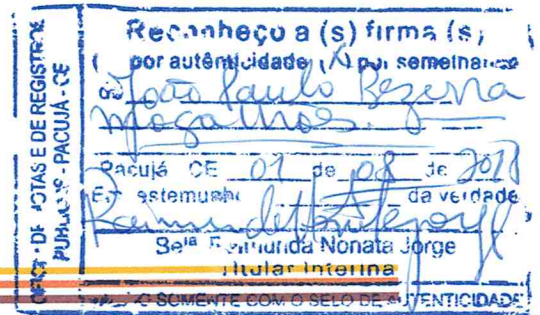 DE NOTAS E DE REGISTROS
PUBLICOS - PACUJÁ - CE
Reconheço a (s) firma (s)
( por autênticidade (X) por semelhança
João Paulo Bezerra
Magalhães.
Pacujá CE 01 de 08 de
Em testemunho da verdade
Belª Raimunda Nonata Jorge
Titular Interina
SOMENTE COM O SELO DE AUTENTICIDADE